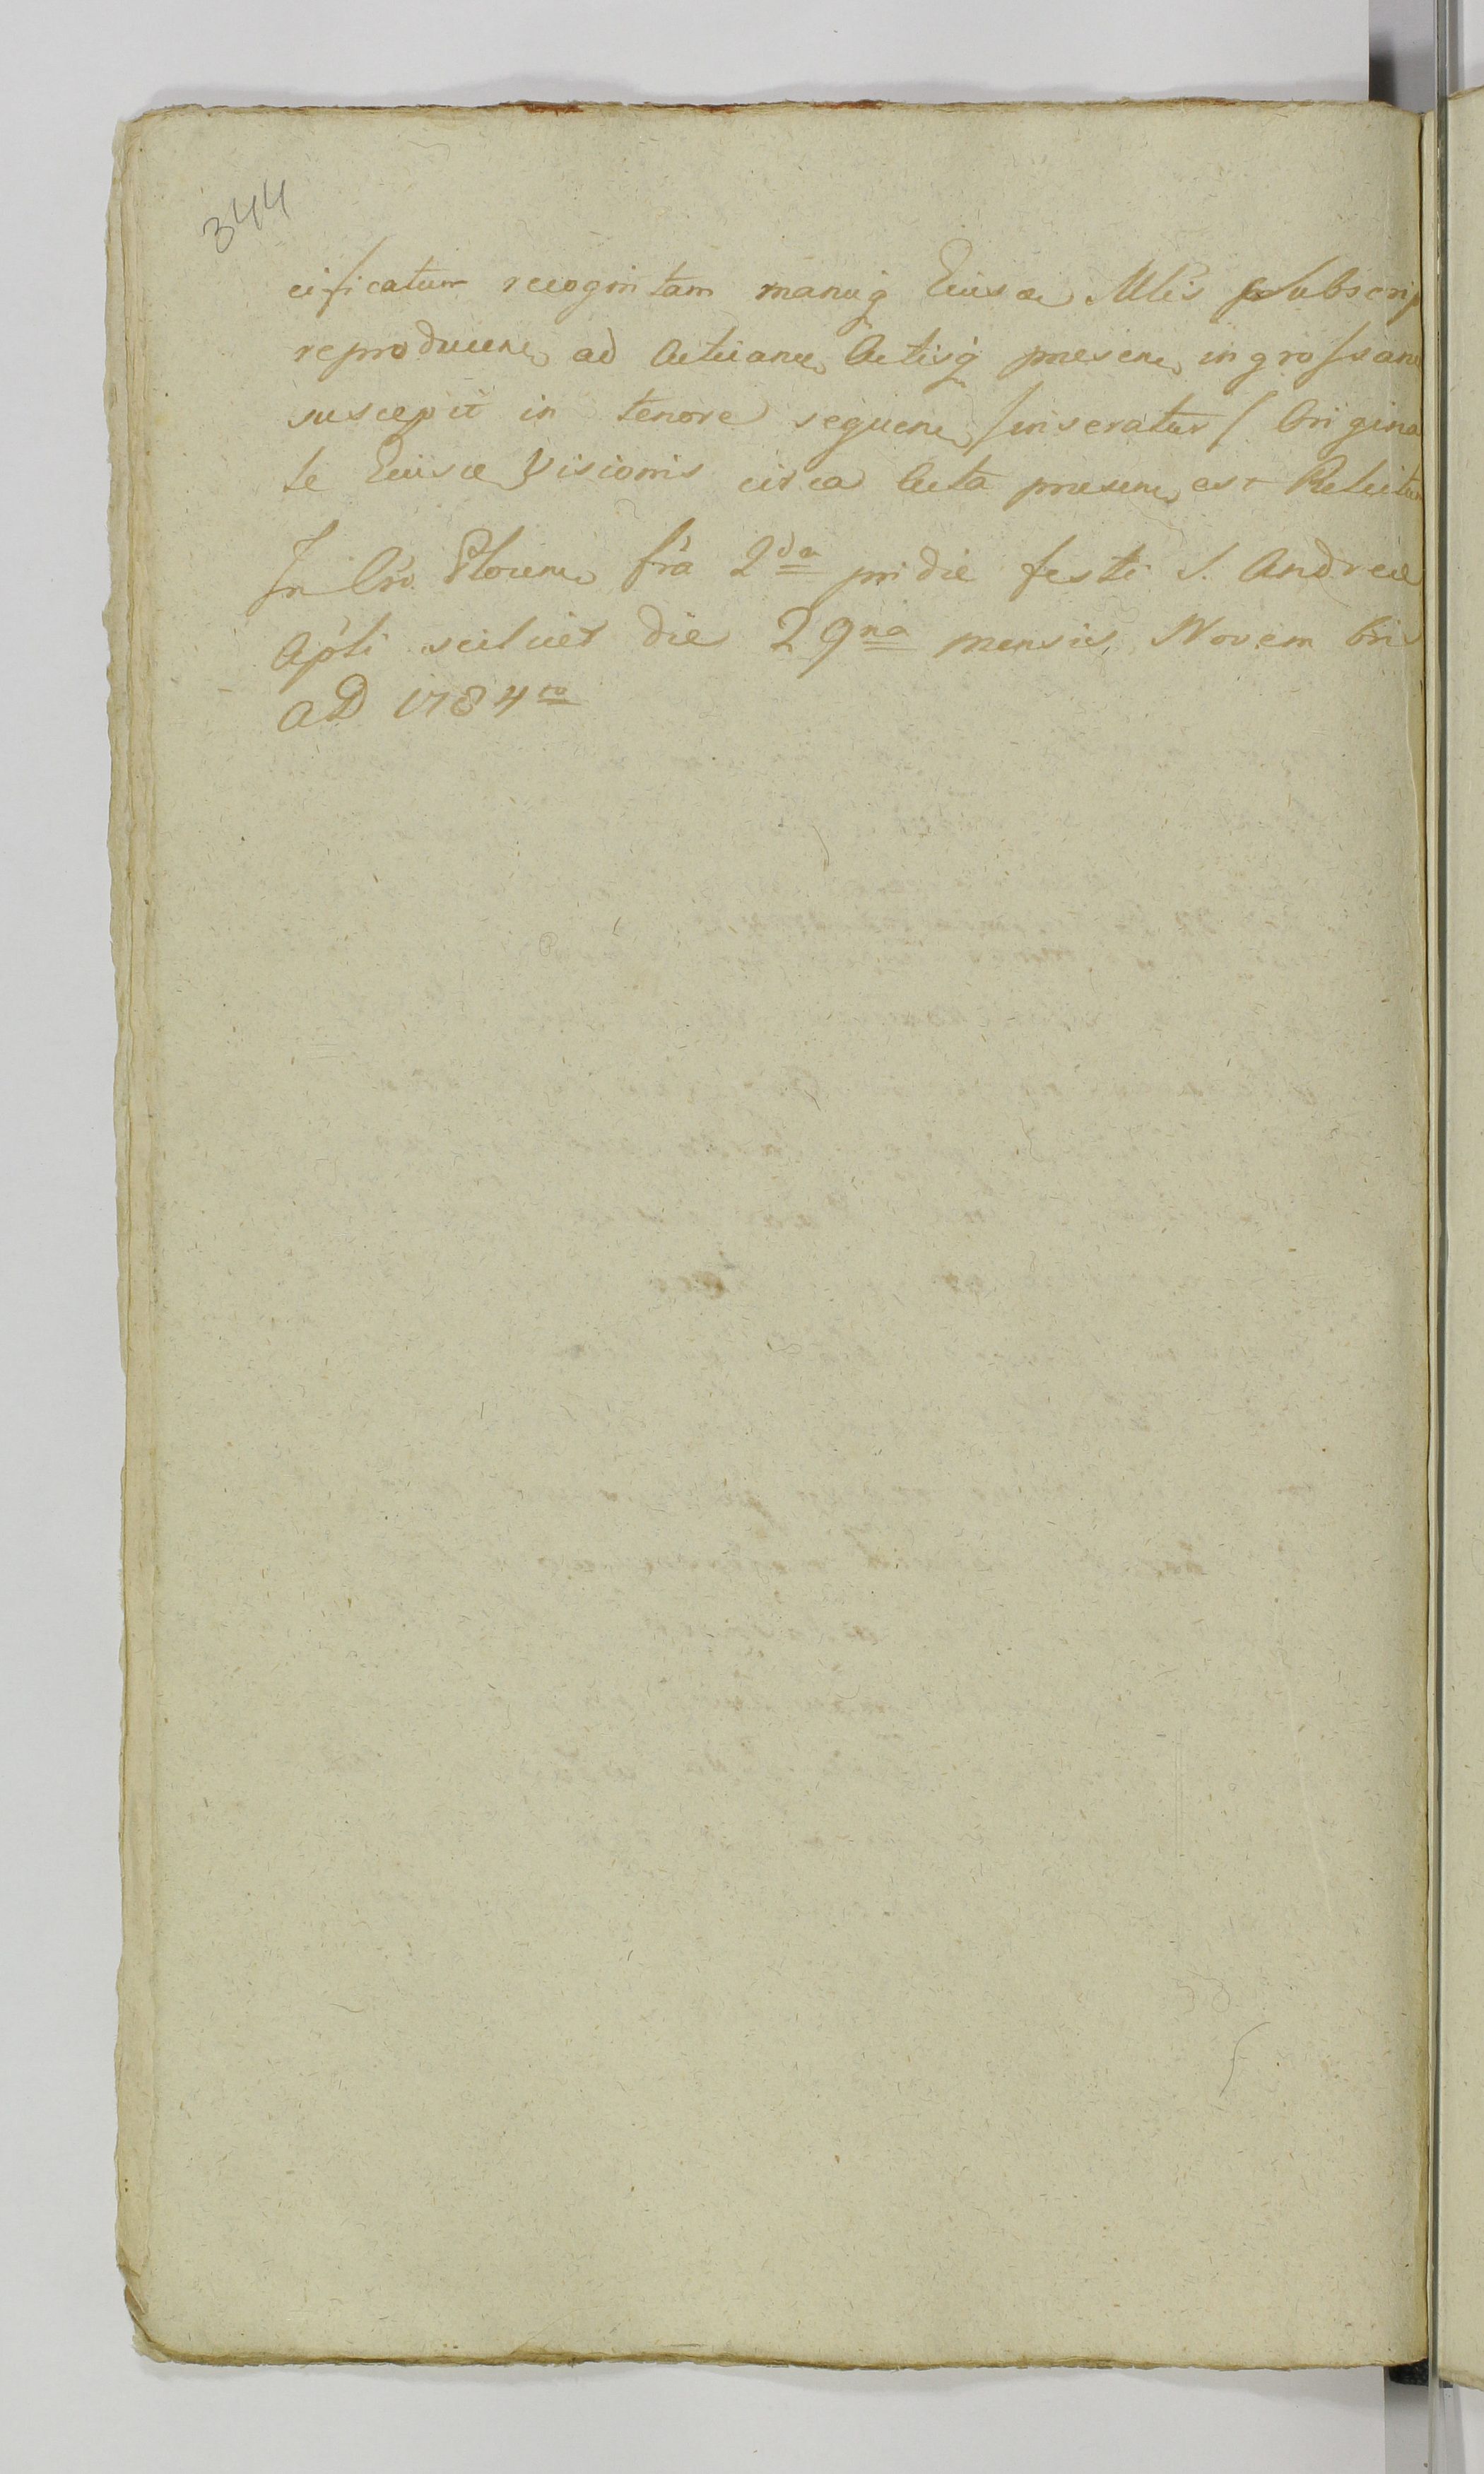 344
cificatum recognitam manuq Eiusce Mtis Subscrip
reproducen ad Acticanu Actisq presen ingrossan
suscepit in tenore sequen /inseratur/ Origina
le Eiusce Visionis circa Acta presen est Relictu
In Cro Plocen fra 2da pridie festi S. Andreæ
Apli scilicet die 29na mensis Novembris
AD 1784to